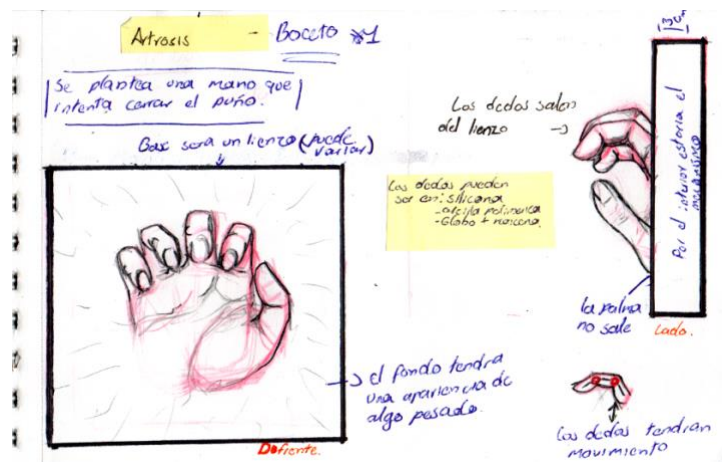 Artrosis - Boceto #1
Se plantea una mano que
intenta cerrar el puño.
Base sera un lienzo (puede
variar)
Los dedos salen
del lienzo
Los dedos pueden
ser en: silicona
- arcilla polimerica
- Globo + maicena.
Por el interior estaria el
mecanismo
la palma
no sale
Lado.
el fondo tendra
una apariencia de
algo pesado.
De frente.
Los dedos tendran
movimiento